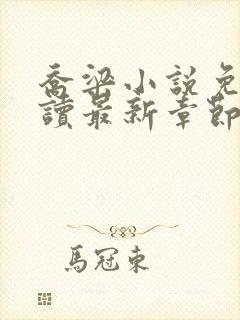 喬梁小說免
讀最新章節
馬冠東